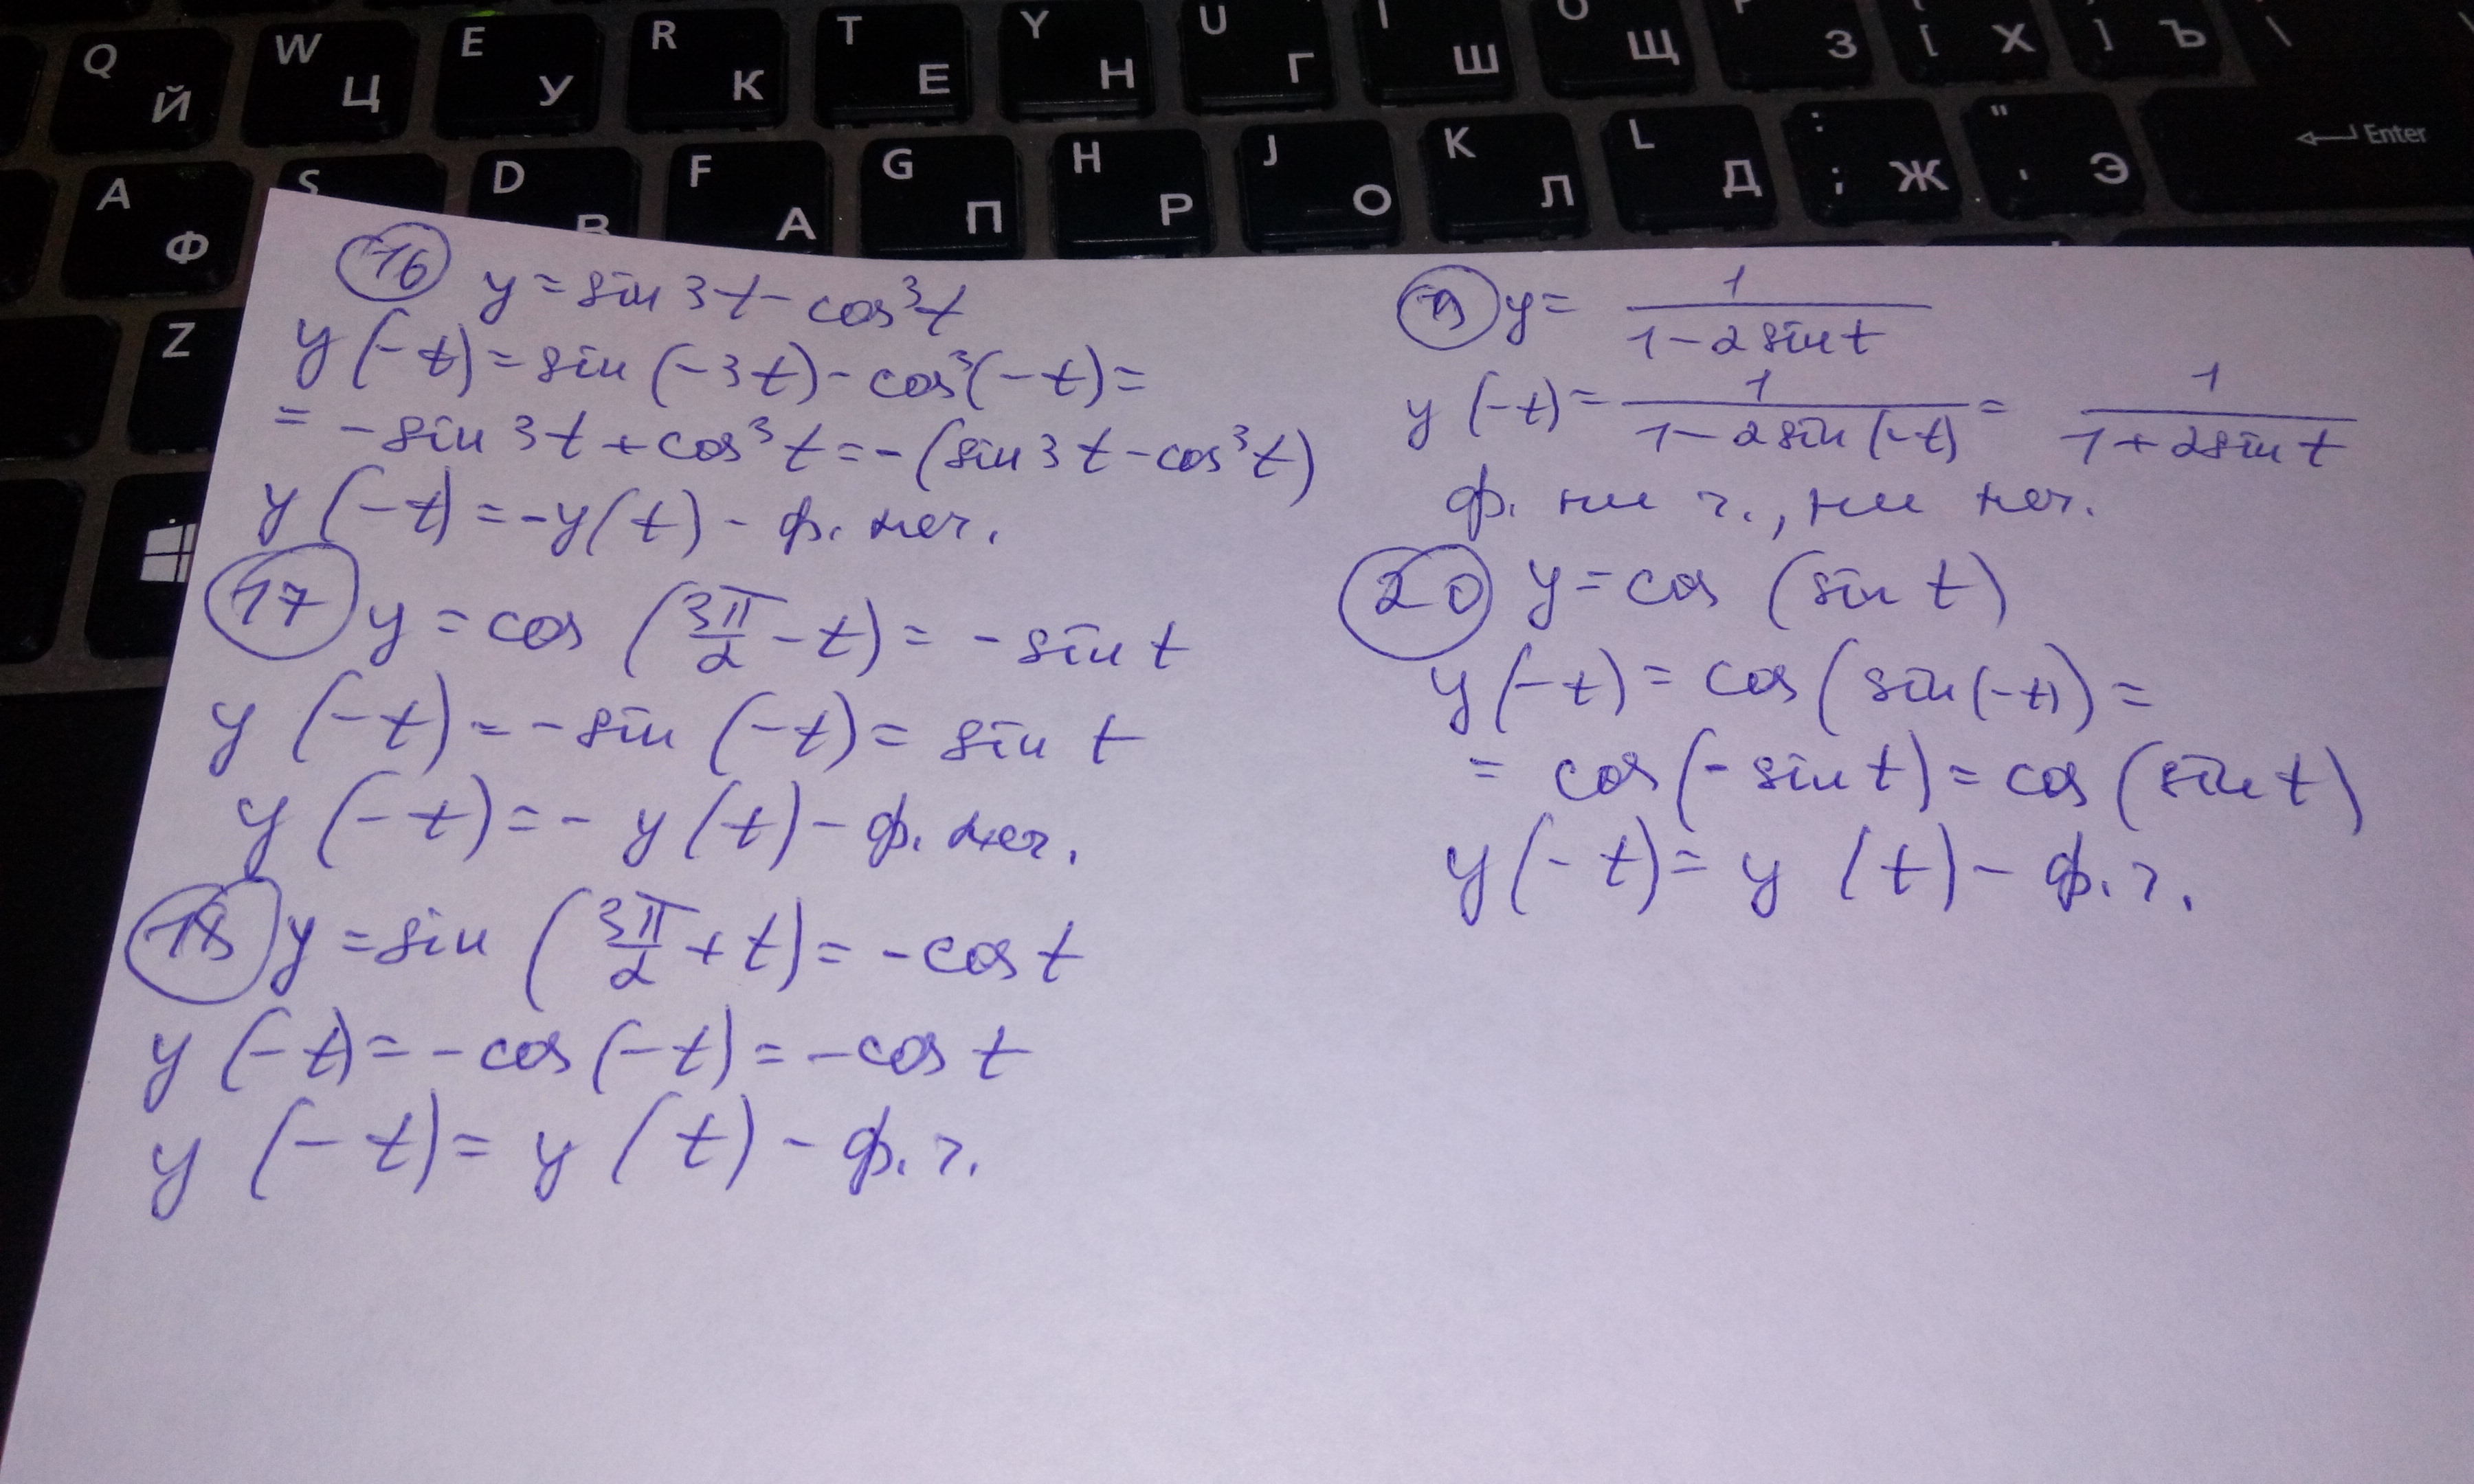 Q Й W Ц E У R К T Е Y Н U Г I Ш O Щ З [ Х ] Ъ \
A Ф S D В F А G П H Р J О K Л L Д : ; Ж " ' Э Enter
Z
16 y = sin 3t - cos³t
y(-t) = sin(-3t) - cos³(-t) =
= -sin 3t + cos³t = -(sin 3t - cos³t)
y(-t) = -y(t) - ф. неч.
17 y = cos (3π/2 - t) = -sin t
y(-t) = -sin(-t) = sin t
y(-t) = -y(t) - ф. неч.
18 y = sin (3π/2 + t) = -cos t
y(-t) = -cos(-t) = -cos t
y(-t) = y(t) - ф. ч.
19 y = 1/(1 - 2 sin t)
y(-t) = 1/(1 - 2sin(-t)) = 1/(1 + 2sin t)
ф. ни ч., ни неч.
20 y = cos (sin t)
y(-t) = cos(sin(-t)) =
= cos(-sin t) = cos (sin t)
y(-t) = y(t) - ф. ч.